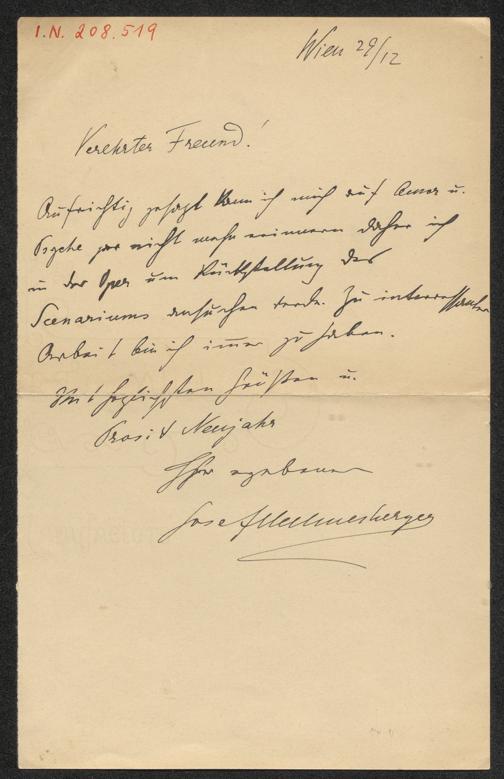 I.N. 208.519
Wien 29/12
Verehrter Freund!
Aufrichtig gesagt kann ich mich auf Amor u.
Psyche gar nicht mehr erinnern daher ich
in der Oper um Rückstellung des
Scenariums ansuchen werde. Zu interessanter
Arbeit bin ich immer zu haben.
Mit herzlichsten Grüßen u.
Prosit Neujahr
Ihr ergebener
Josef Hellmesberger